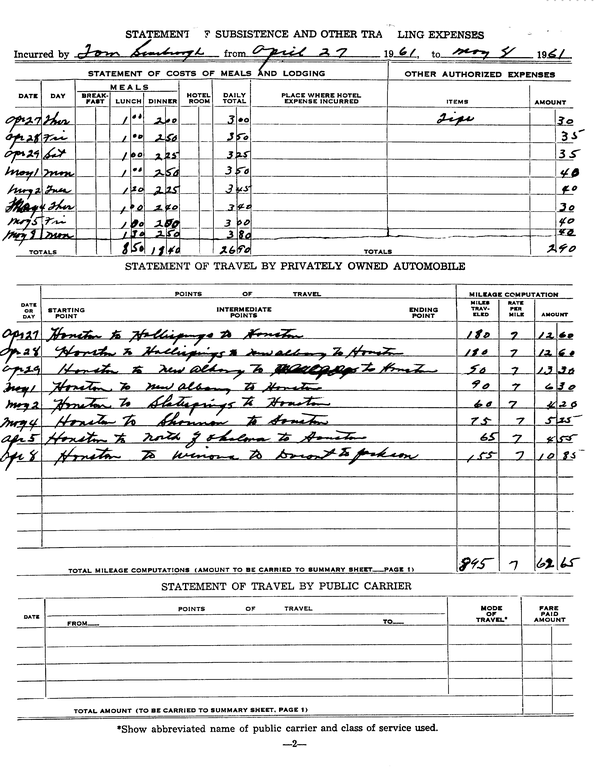 STATEMENT F SUBSISTENCE AND OTHER TRA LING EXPENSES
Incurred by Tom from April 27 1961, to May 8 1961
STATEMENT OF COSTS OF MEALS AND LODGING OTHER AUTHORIZED EXPENSES
MEALS
DATE DAY BREAK-FAST LUNCH DINNER HOTEL ROOM DAILY TOTAL PLACE WHERE HOTEL EXPENSE INCURRED ITEMS AMOUNT
Apr 27 Thur 1 00 2 00 3 00 Tips 30
Apr 28 Fri 1 00 2 50 3 50 35
Apr 29 Sat 1 00 2 25 3 25 35
May 1 Mon 1 00 2 50 3 50 40
May 2 Tues 1 20 2 25 3 45 40
May 4 Thur 1 00 2 40 3 40 30
May 5 Fri 1 00 2 00 3 00 40
May 8 Mon 1 30 2 50 3 80 40
TOTALS 8 50 18 40 26 90 TOTALS 2 90
STATEMENT OF TRAVEL BY PRIVATELY OWNED AUTOMOBILE
POINTS OF TRAVEL MILEAGE COMPUTATION
DATE OR DAY STARTING POINT INTERMEDIATE POINTS ENDING POINT MILES TRAV-ELED RATE PER MILE AMOUNT
Apr 27 Houston to to Houston 180 7 12 60
Apr 28 Houston to to New Albany to Houston 180 7 12 60
Apr 29 Houston to New Albany to to Houston 7 13 30
May 1 Houston to New Albany to Houston 90 7 6 30
May 2 Houston to Slatesprings to Houston 60 7 4 20
May 4 Houston to Shannon to Houston 75 7 5 25
Apr 5 Houston to North of Okolona to Houston 65 7 4 55
Apr 8 Houston to Winona to Durant to Jackson 155 7 10 85
TOTAL MILEAGE COMPUTATIONS (AMOUNT TO BE CARRIED TO SUMMARY SHEET PAGE 1) 895 7 62 65
STATEMENT OF TRAVEL BY PUBLIC CARRIER
DATE POINTS OF TRAVEL MODE OF TRAVEL* FARE PAID AMOUNT
FROM TO
TOTAL AMOUNT (TO BE CARRIED TO SUMMARY SHEET, PAGE 1)
*Show abbreviated name of public carrier and class of service used.
—2—